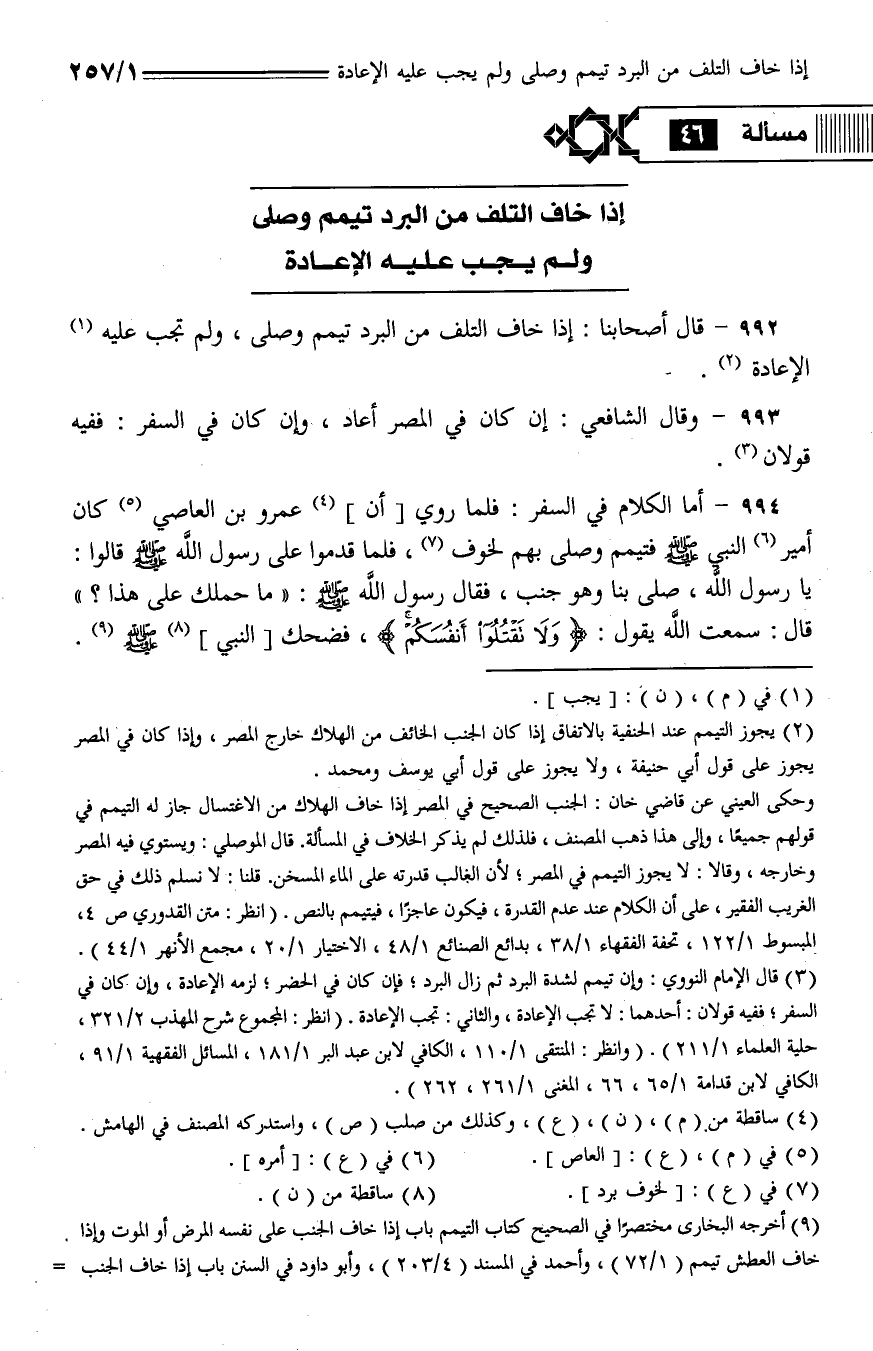 إذا خاف التلف من البرد تيمم وصلى ولم يجب عليه الإعادة ٢٥٧/١
مسألة ٤٦
إذا خاف التلف من البرد تيمم وصلى
ولم يجب عليه الإعادة
٩٩٢ - قال أصحابنا : إذا خاف التلف من البرد تيمم وصلى ، ولم تجب عليه (١)
الإعادة (٢) .
٩٩٣ - وقال الشافعي : إن كان في المصر أعاد ، وإن كان في السفر : ففيه
قولان (٣) .
٩٩٤ - أما الكلام في السفر : فلما روي [ أن ] (٤) عمرو بن العاصي (٥) كان
أمير (٦) النبي ﷺ فتيمم وصلى بهم لخوف (٧) ، فلما قدموا على رسول الله ﷺ قالوا :
يا رسول الله ، صلى بنا وهو جنب ، فقال رسول الله ﷺ : « ما حملك على هذا ؟ »
قال : سمعت الله يقول : ﴿ وَلَا نَقْتُلُوٓا۟ أَنفُسَكُمْ ۚ ﴾ ، فضحك [ النبي ] (٨) ﷺ (٩) .
(١) في ( م ) ، ( ن ) : [ يجب ] .
(٢) يجوز التيمم عند الحنفية بالاتفاق إذا كان الجنب الخائف من الهلاك خارج المصر ، وإذا كان في المصر
يجوز على قول أبي حنيفة ، ولا يجوز على قول أبي يوسف ومحمد .
وحكى العيني عن قاضي خان : الجنب الصحيح في المصر إذا خاف الهلاك من الاغتسال جاز له التيمم في
قولهم جميعًا ، وإلى هذا ذهب المصنف ، فلذلك لم يذكر الخلاف في المسألة. قال الموصلي : ويستوي فيه المصر
وخارجه ، وقالا : لا يجوز التيمم في المصر ؛ لأن الغالب قدرته على الماء المسخن. قلنا : لا نسلم ذلك في حق
الغريب الفقير ، على أن الكلام عند عدم القدرة ، فيكون عاجزًا ، فيتيمم بالنص . ( انظر : متن القدوري ص ٤،
المبسوط ١٢٢/١ ، تحفة الفقهاء ٣٨/١ ، بدائع الصنائع ٤٨/١ ، الاختيار ٢٠/١ ، مجمع الأنهر ٤٤/١ ) .
(٣) قال الإمام النووي : وإن تيمم لشدة البرد ثم زال البرد ؛ فإن كان في الحضر ؛ لزمه الإعادة ، وإن كان في
السفر ؛ ففيه قولان : أحدهما : لا تجب الإعادة ، والثاني : تجب الإعادة . ( انظر : المجموع شرح المهذب ٣٢١/٢ ،
حلية العلماء ٢١١/١ ) . ( وانظر : المنتقى ١١٠/١ ، الكافي لابن عبد البر ١٨١/١ ، المسائل الفقهية ٩١/١ ،
الكافي لابن قدامة ٦٥/١ ، ٦٦ ، المغنى ٢٦١/١ ، ٢٦٢ ) .
(٤) ساقطة من ( م ) ، ( ن ) ، ( ع ) ، وكذلك من صلب ( ص ) ، واستدركه المصنف في الهامش .
(٥) في ( م ) ، ( ع ) : [ العاص ] . (٦) في ( ع ) : [ أمره ] .
(٧) في ( ع ) : [ لخوف برد ] . (٨) ساقطة من ( ن ) .
(٩) أخرجه البخارى مختصرًا في الصحيح كتاب التيمم باب إذا خاف الجنب على نفسه المرض أو الموت وإذا
خاف العطش تيمم ( ٧٢/١ ) ، وأحمد في المسند ( ٢٠٣/٤ ) ، وأبو داود في السنن باب إذا خاف الجنب =